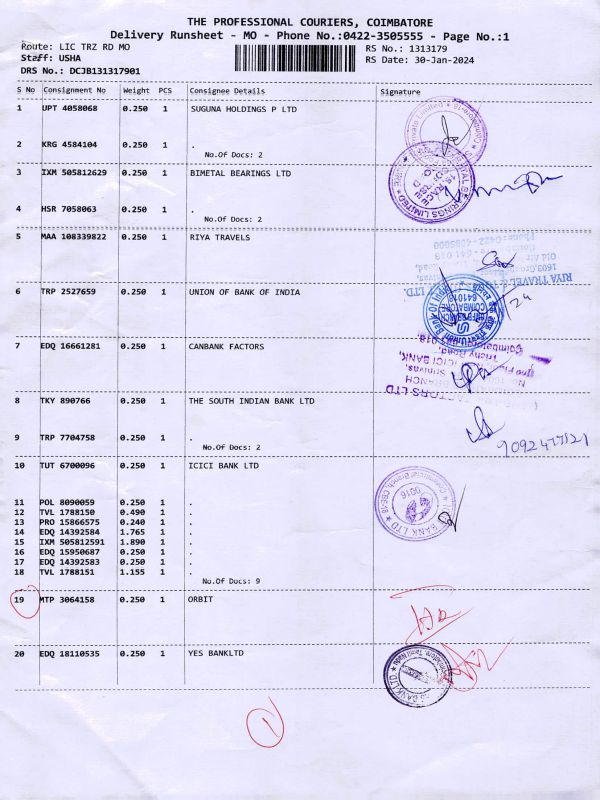 THE PROFESSIONAL COURIERS, COIMBATORE
Delivery Runsheet - MO - Phone No.:0422-3505555 - Page No.:1
Route: LIC TRZ RD MO RS No.: 1313179
Staff: USHA RS Date: 30-Jan-2024
DRS No.: DCJB131317901
S No Consignment No Weight PCS Consignee Details Signature
1 UPT 4058068 0.250 1 SUGUNA HOLDINGS P LTD
2 KRG 4584104 0.250 1 .
No.Of Docs: 2
3 IXM 505812629 0.250 1 BIMETAL BEARINGS LTD
4 HSR 7058063 0.250 1 .
No.Of Docs: 2
5 MAA 108339822 0.250 1 RIYA TRAVELS
6 TRP 2527659 0.250 1 UNION OF BANK OF INDIA
7 EDQ 16661281 0.250 1 CANBANK FACTORS
8 TKY 890766 0.250 1 THE SOUTH INDIAN BANK LTD
9 TRP 7704758 0.250 1 .
No.Of Docs: 2
10 TUT 6700096 0.250 1 ICICI BANK LTD
11 POL 8090059 0.250 1 .
12 TVL 1788150 0.490 1 .
13 PRO 15866575 0.240 1 .
14 EDQ 14392584 1.765 1 .
15 IXM 505812591 1.890 1 .
16 EDQ 15950687 0.250 1 .
17 EDQ 14392583 0.250 1 .
18 TVL 1788151 1.155 1 .
No.Of Docs: 9
19 MTP 3064158 0.250 1 ORBIT
20 EDQ 18110535 0.250 1 YES BANKLTD
1